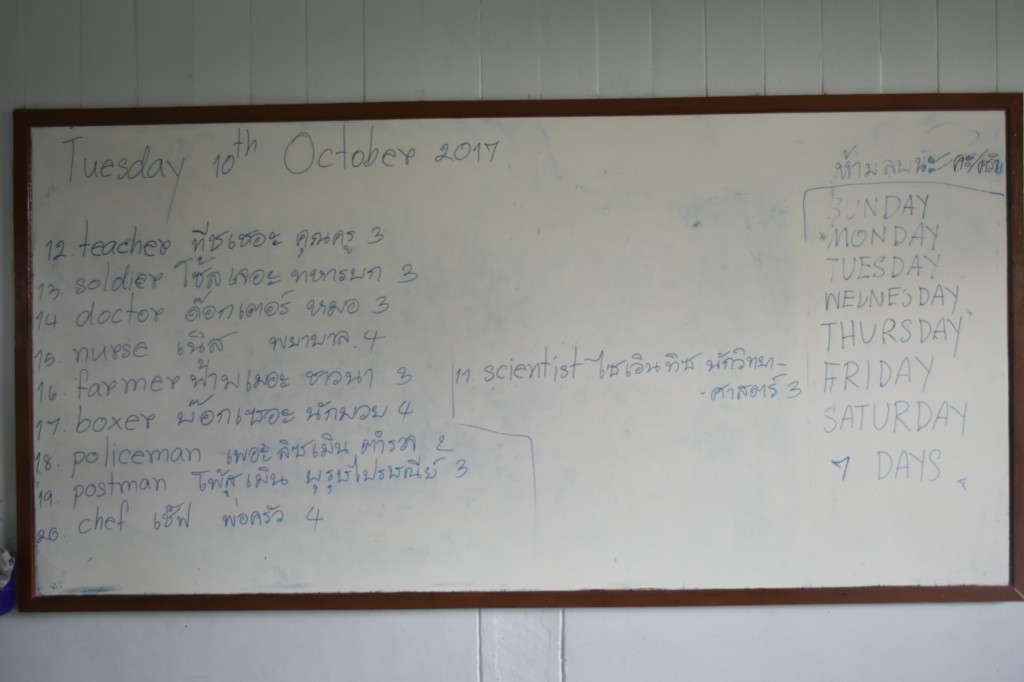 Tuesday 10th October 2017
12. teacher ทีชเชอะ คุณครู 3
13. soldier โซ้ลเจอะ ทหารบก 3
14. doctor ด๊อกเตอร์ หมอ 3
15. nurse เนิส พยาบาล 4
16. farmer ฟามเมอะ ชาวนา 3
17. boxer บ๊อกเซอะ นักมวย 4
18. policeman เพอะลิซเมิน ตำรวจ 2
19. postman โพ้สเมิน บุรุษไปรษณีย์ 3
20. chef เช็ฟ พ่อครัว 4
11. scientist ไซเอินทิซ นักวิทยา-
-ศาสตร์ 3
ห้ามลบนะ คะ/ครับ
SUNDAY
MONDAY
TUESDAY
WEDNESDAY
THURSDAY
FRIDAY
SATURDAY
7 DAYS